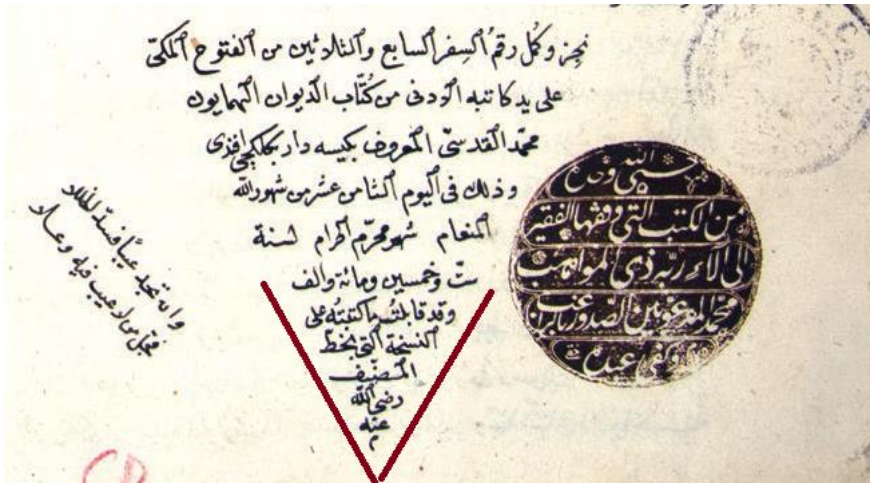 نجز وكمل رقم السفر السابع والثلاثين من الفتوح المكي
على يد كاتبه الادنى من كتّاب الديوان الهمايون
محمّد القدسىّ المعروف بكيسه دار افندى
وذلك فى اليوم الثامن عشر من شهور الله
المنعام شهر محرّم الحرام لسنة
ستّ وخمسين ومائة والف
وقد قابلتُ ما كتبتُه على
النسخة التى بخطّ
المصنّف
رضى الله
عنه
وان تجد عيبا فسدّ الخللا
فجلّ من لا عيب فيه وعلا
حسبي الله وحده
من الكتب التي وقفها الفقير
الى آلاء ربه ذي المواهب
محمد المدعو بين الصدور براغب
وكفى عبده